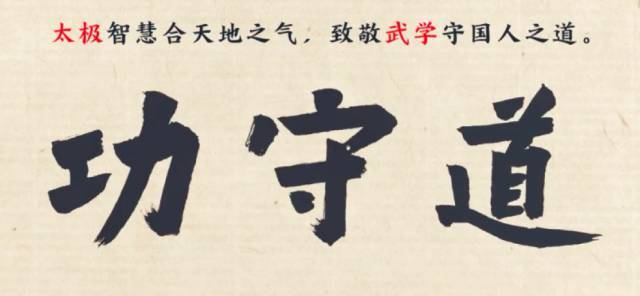 太极智慧合天地之气，致敬武学守国人之道。
功守道